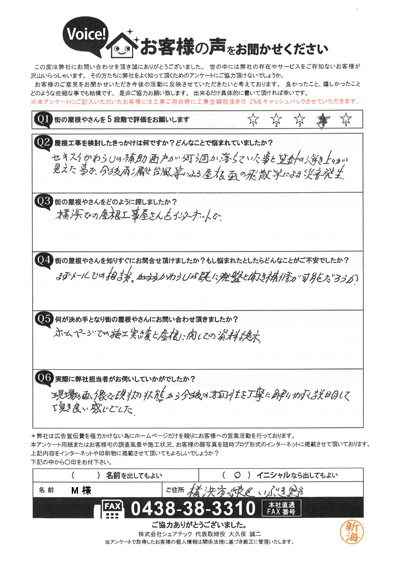 Voice! お客様の声をお聞かせください
この度は弊社にお問い合わせを頂き誠にありがとうございました。世の中には弊社の存在やサービスをご存知ないお客様が
沢山いらっしゃいます。その方たちに弊社をよく知って頂くためのアンケートにご協力頂けないでしょうか。
お客様のご意見をお聞かせいただき今後の活動に反映させていただきたいと考えております。良かったこと、嬉しかったこと
どのような些細な事でも結構です。是非ご協力お願い致します。出来るだけ具体的に書いて頂ければ幸いです。
※本アンケートにご記入いただいたお客様には工事ご用命時に工事金額税抜きの 2%をキャッシュバックさせていただきます。
Q1 街の屋根やさんを 5 段階で評価をお願いします ☆ ☆ ☆ ★ ☆
Q2 屋根工事を検討したきっかけは何ですか？どんなことで悩まれていましたか？
セキスイかわらUの補助
見えた事で、今後雨漏と台風等による屋根瓦の飛散等による災害発生
Q3 街の屋根やさんをどのように探しましたか？
横浜での屋根工事屋さんをインターネットで、
Q4 街の屋根やさんを知りすぐにお問合せ頂けましたか？もし悩まれたとしたらどんなことがご不安でしたか？
まずメールでの相談。
Q5 何が決め手となり街の屋根やさんにお問い合わせ頂きましたか？
ホームページでの施工実績と屋根に関しての資料
Q6 実際に弊社担当者がお伺いしていかがでしたか？
現場の画像で現状の状態から今後の方向性を丁寧に解りやすく説明して
頂き良い感じでした。
＊弊社は広告宣伝費を極力かけない為にホームページだけを頼りにお客様への営業活動を行っております。
本アンケート用紙またはお客様宅の調査風景や施工状況、お客様の顔写真を随時ブログ形式でのインターネットに掲載させて頂いております。
上記内容をインターネットや印刷物に掲載させて頂いてもよろしいでしょうか？
下記の中から○印をお付下さい。
（　）名前を出してもよい （○）イニシャルなら出してもよい
名 前 M 様 ご住所 横浜市緑区いぶき野
FAX 0438-38-3310 本社直通 FAX 番号
ご協力ありがとうございました。
株式会社シェアテック 代表取締役 大久保 誠二
当アンケートで取得したお客様の個人情報は関係法規に基づき厳正に管理いたします。
新海